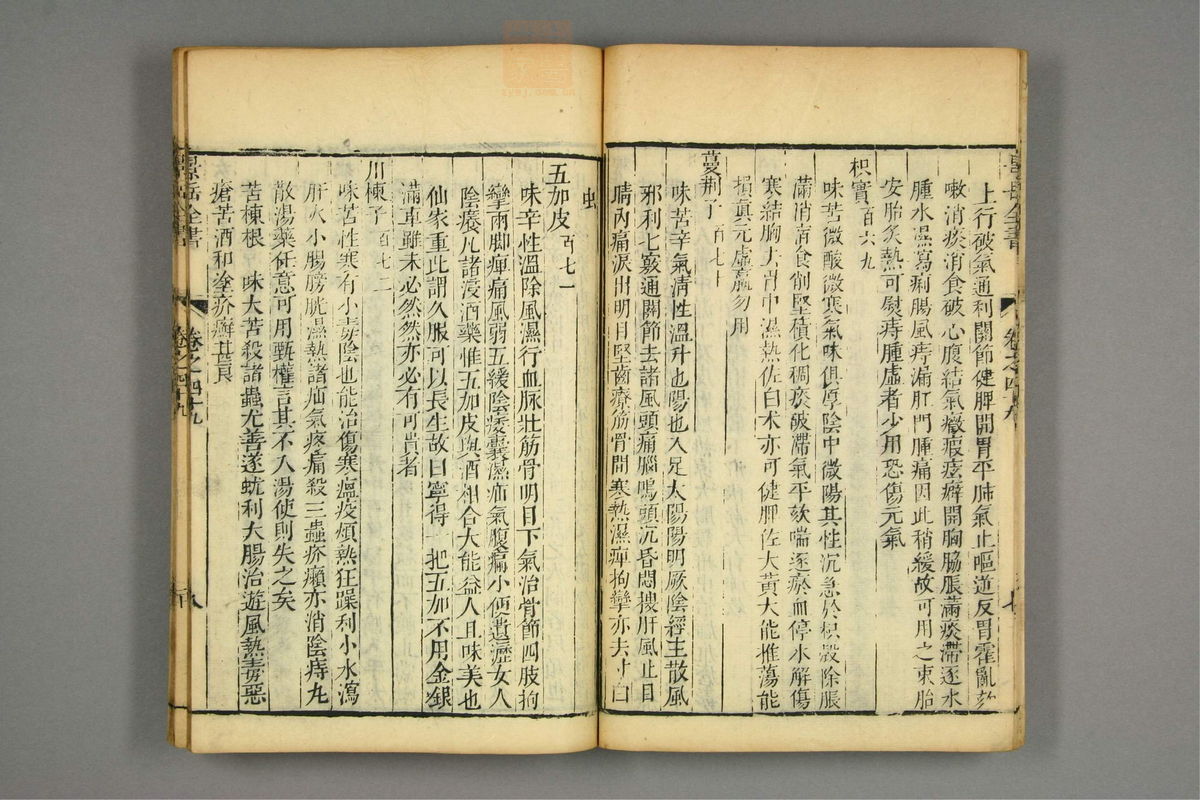 景岳全書 卷之四十九
上行破氣通利關節健脾開胃平肺氣止嘔逆反胃霍亂欬
嗽消痰消食破心腹結氣癥瘕痃癖開胸脇脹滿痰滯逐水
腫水濕瀉痢腸風痔漏肛門腫痛因此稍緩故可用之束胎
安胎炙熱可熨痔腫虛者少用恐傷元氣
枳實百六九
味苦微酸微寒氣味俱厚陰中微陽其性沉急於枳殼除脹
滿消宿食削堅積化稠痰破滯氣平欬喘逐瘀血停水解傷
寒結胸去胃中濕熱佐白朮亦可健脾佐大黃大能推蕩能
損真元虛羸勿用
蔓荊子百七十
味苦辛氣清性溫升也陽也入足太陽陽明厥陰經主散風
邪利七竅通關節去諸風頭痛腦鳴頭沉昏悶搜肝風止目
睛內痛淚出明目堅齒療筋骨間寒熱濕痺拘攣亦去寸白
虫
五加皮百七一
味辛性溫除風濕行血脉壯筋骨明目下氣治骨節四肢拘
攣兩脚痺痛風弱五緩陰痿囊濕疝氣腹痛小便遺瀝女人
陰癢凡諸浸酒藥惟五加皮與酒相合大能益人且味美也
仙家重此謂久服可以長生故曰寧得一把五加不用金銀
滿車雖未必然然亦必有可貴者
川楝子百七二
味苦性寒有小毒陰也能治傷寒瘟疫煩熱狂躁利小水瀉
肝火小腸膀胱濕熱諸疝氣疼痛殺三蟲疥癩亦消陰痔丸
散湯藥任意可用甄權言其不入湯使則失之矣
苦楝根 味大苦殺諸蟲尤善逐蚘利大腸治遊風熱毒惡
瘡苦酒和塗疥癬甚良
景岳全書 卷之四十九 八